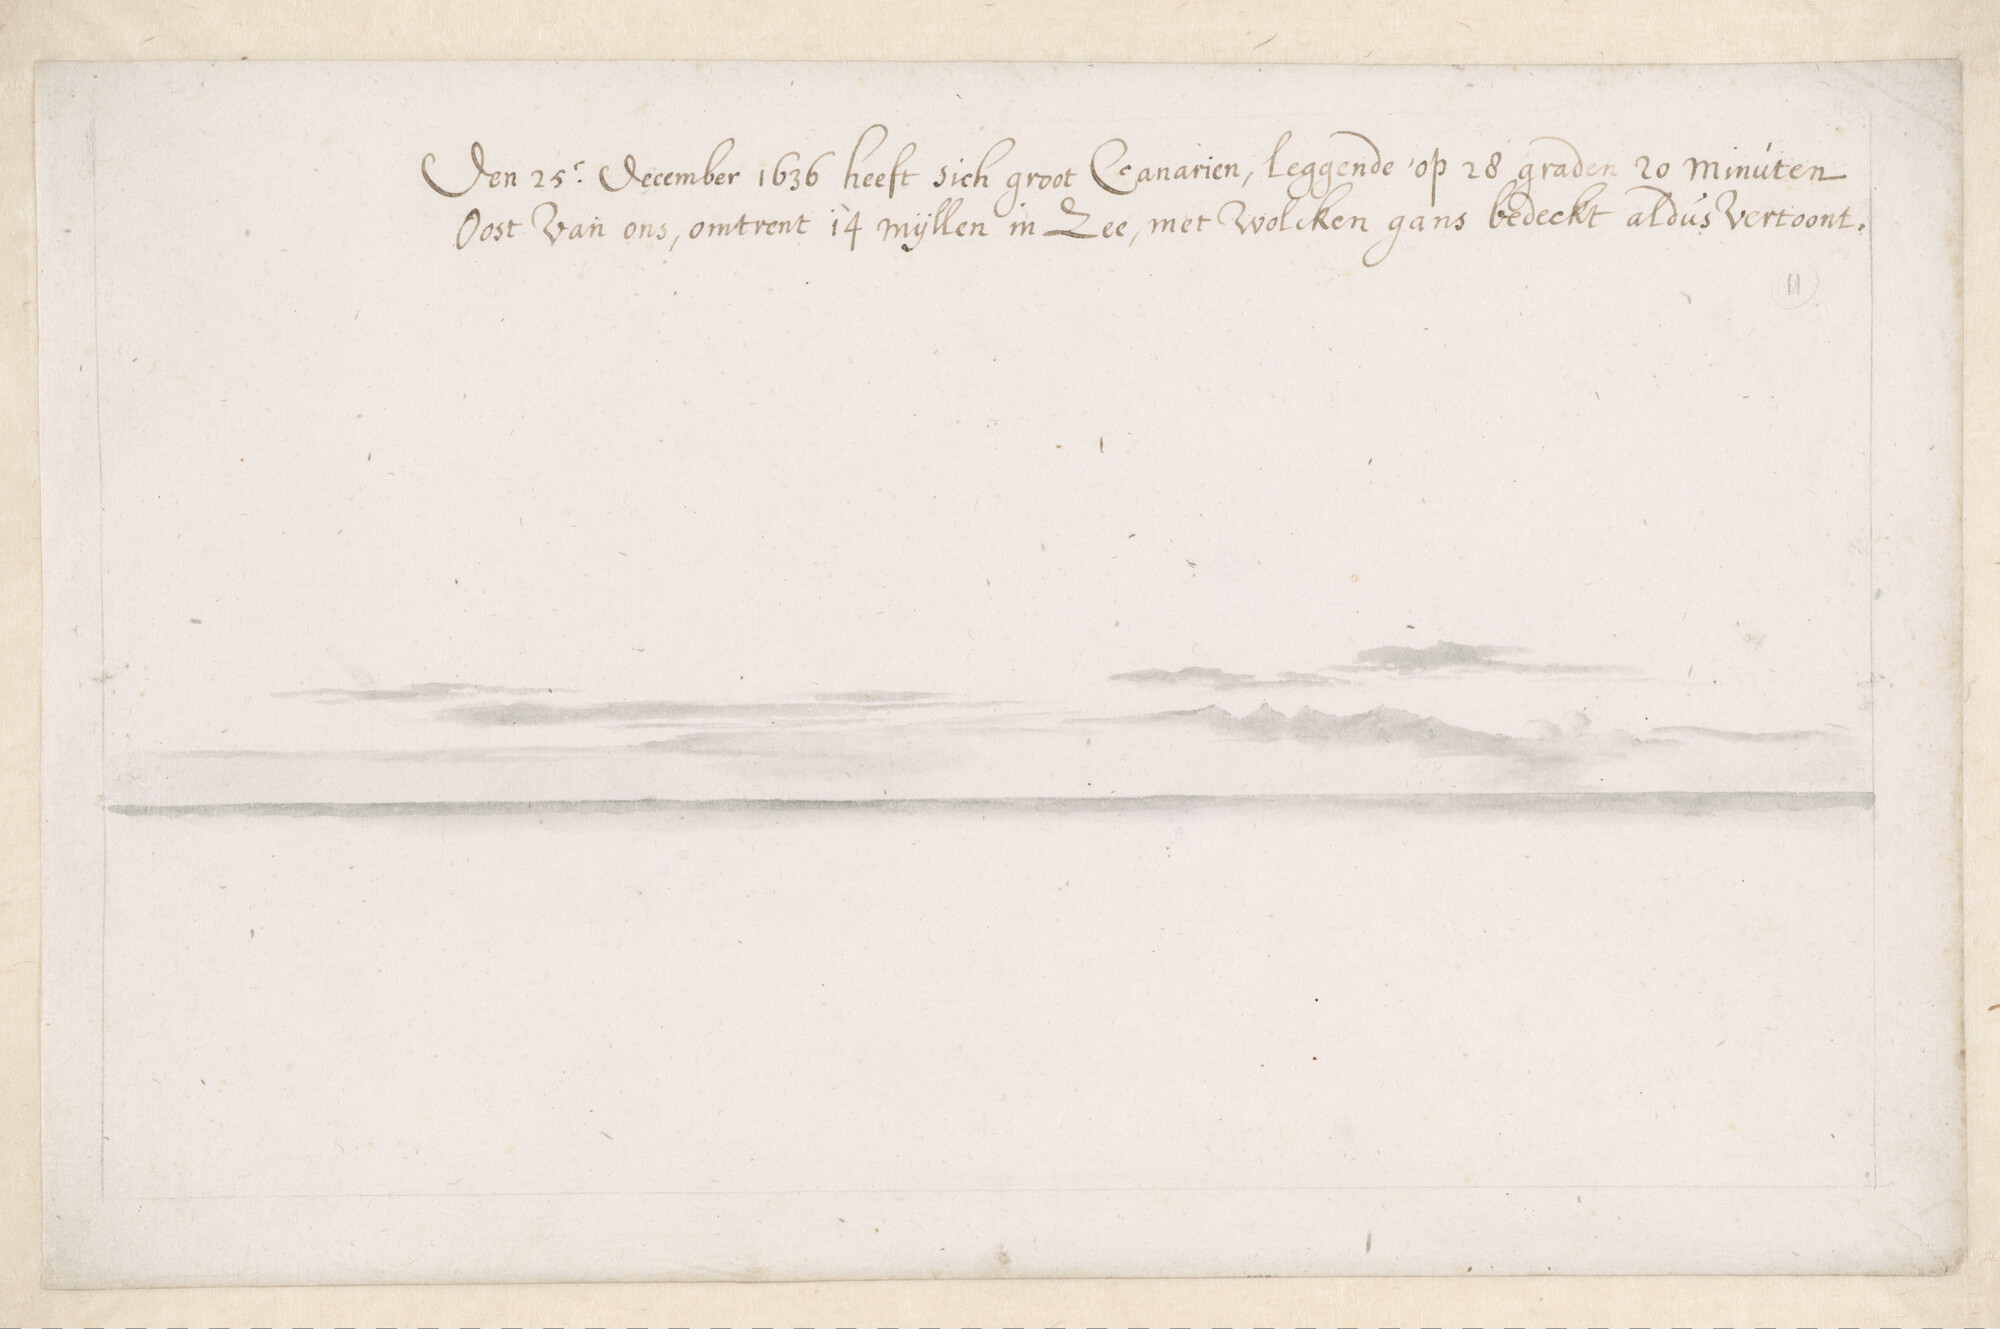 Den 25.ͬ December 1636 heeft sich groot Canarien, leggende op 28 graden 20 minúten
Oost Van ons, omtrent 14 mÿllen in Zee, met Wolcken gans bedeckt aldús Vertoont.
11